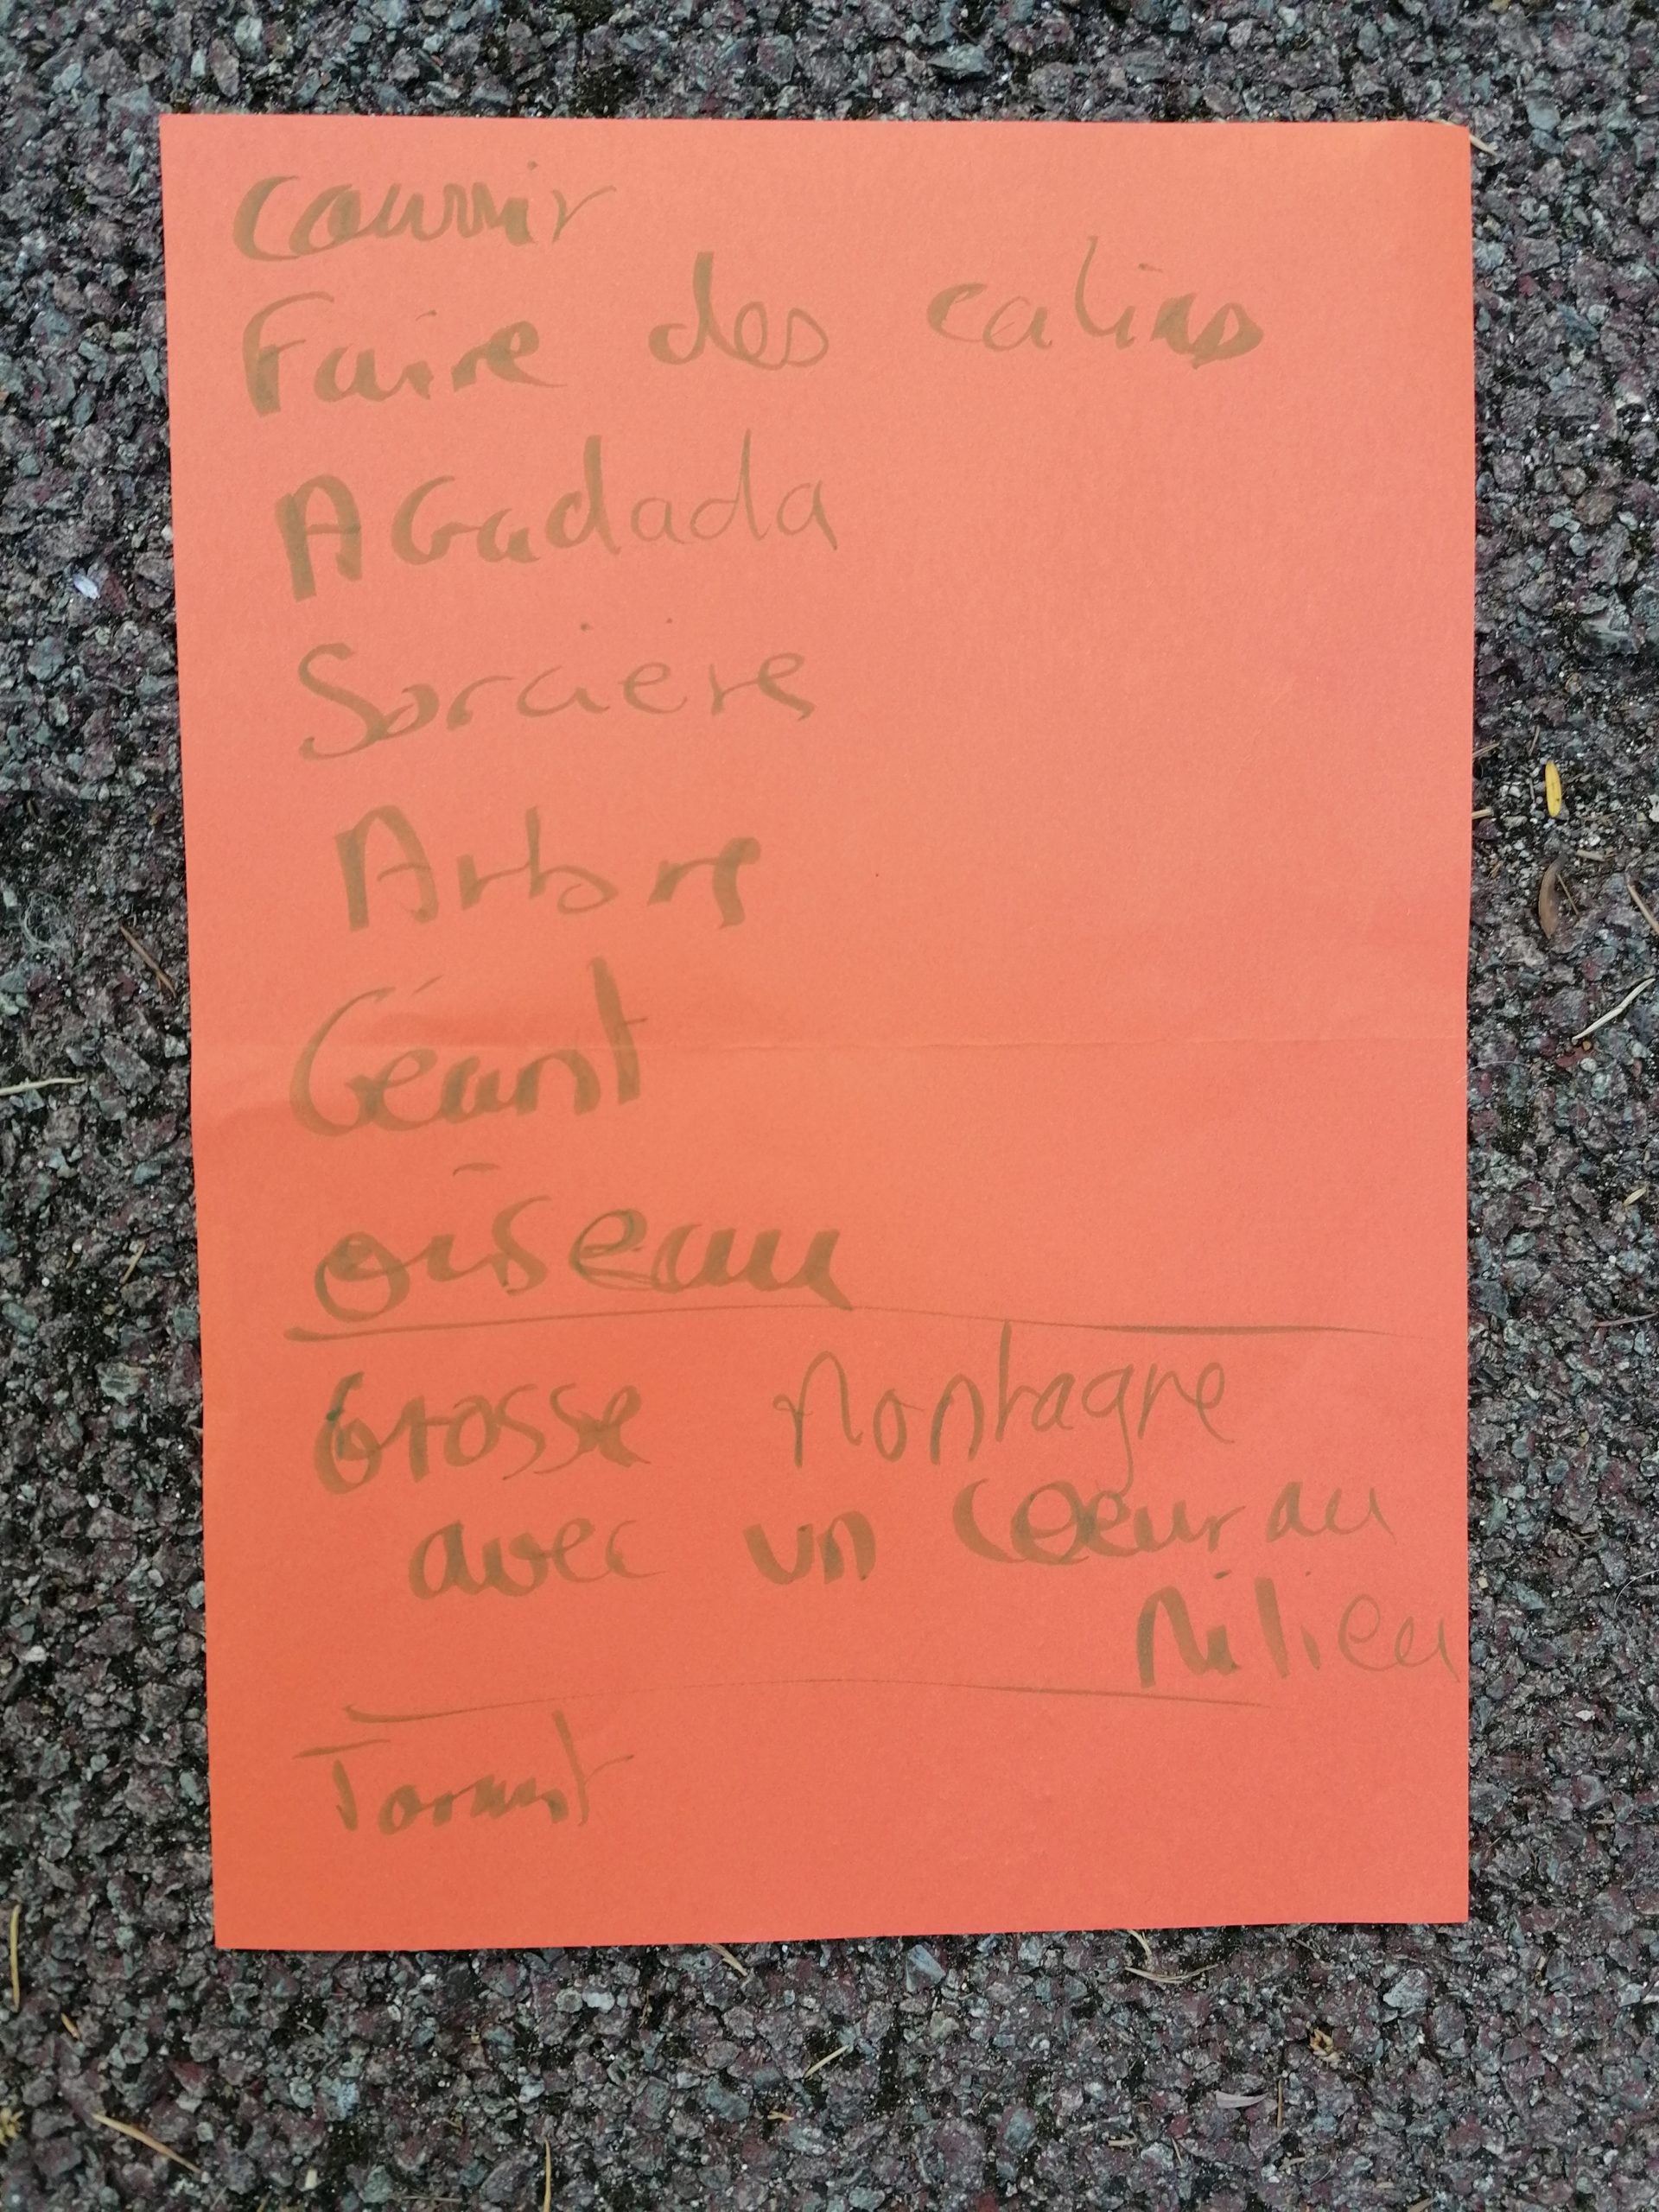 courrir
Faire des calins
AGadada
Sorciere
Arbre
Géant
oiseau
Grosse Montagne
avec un coeur au
Milieu